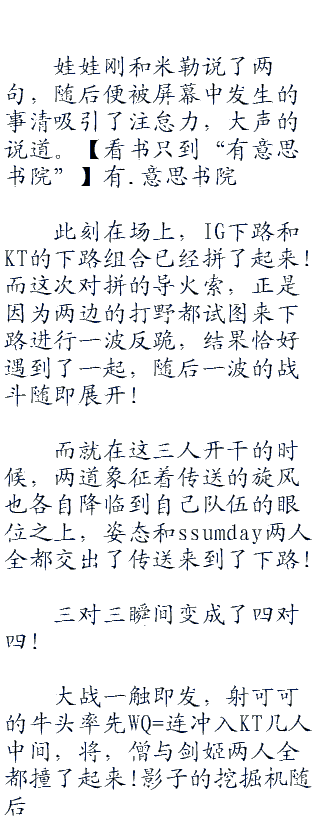 娃娃刚和米勒说了两
句，随后便被屏幕中发生的
事清吸引了注怠力，大声的
说道。【看书只到“有意思
书院”】有.意思书院
此刻在场上，IG下路和
KT的下路组合已经拼了起来!
而这次对拼的导火索，正是
因为两边的打野都试图来下
路进行一波反跪，结果恰好
遇到了一起，随后一波的战
斗随即展开!
而就在这三人开干的时
候，两道象征着传送的旋风
也各自降临到自己队伍的眼
位之上，姿态和ssumday两人
全都交出了传送来到了下路!
三对三瞬间变成了四对
四!
大战一触即发，射可可
的牛头率先WQ=连冲入KT几人
中间，将，僧与剑姬两人全
都撞了起来!影子的挖掘机随
后